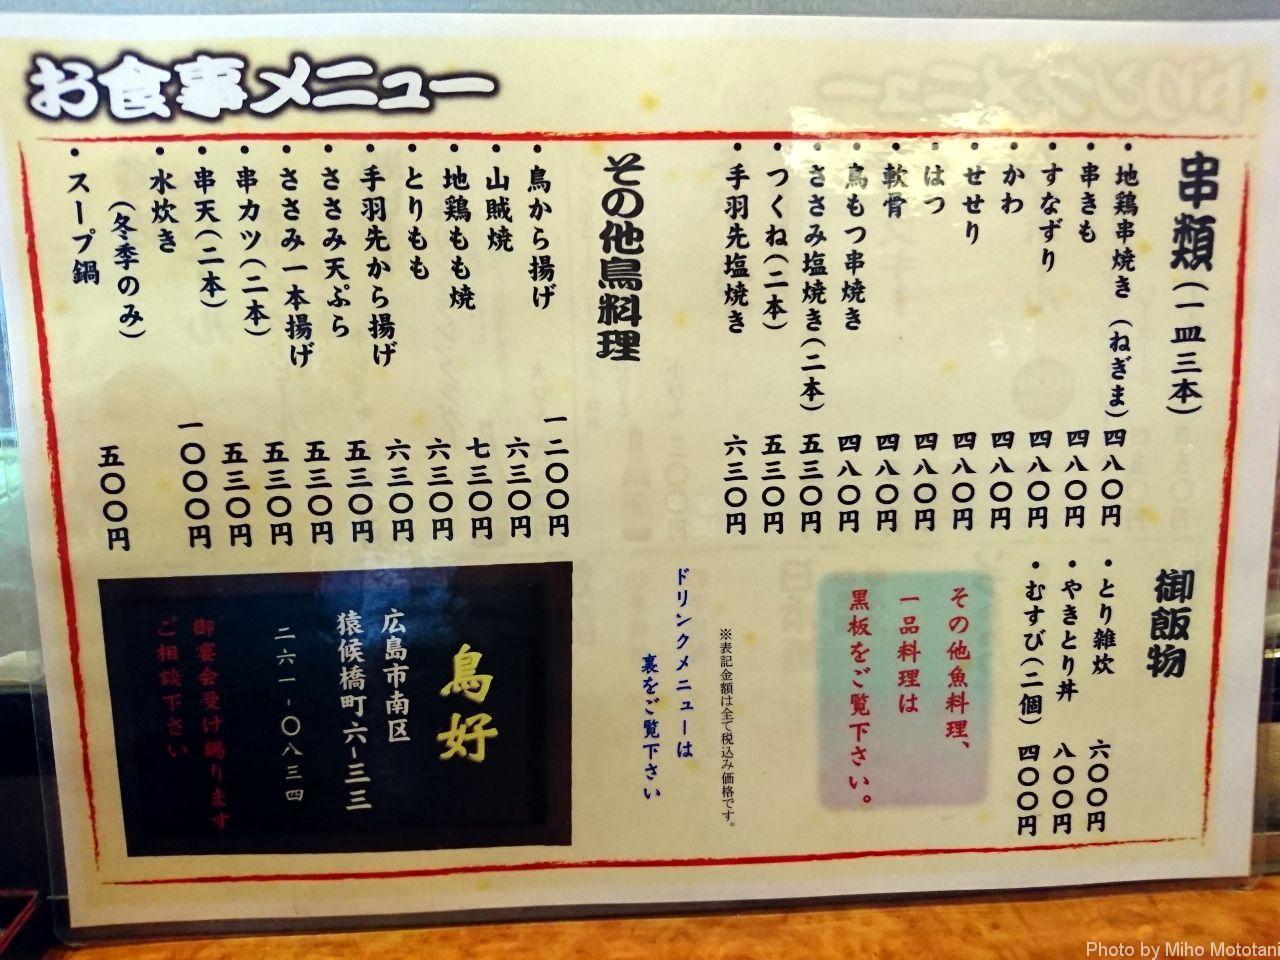 お食事メニュー
串類(一皿三本)
・地鶏串焼き(ねぎま) 四八〇円
・串きも 四八〇円
・すなずり 四八〇円
・かわ 四八〇円
・せせり 四八〇円
・はつ 四八〇円
・軟骨 四八〇円
・鳥もつ串焼き 四八〇円
・ささみ塩焼き(二本) 五三〇円
・つくね(二本) 五三〇円
・手羽先塩焼き 六三〇円
その他鳥料理
・鳥から揚げ 一二〇〇円
・山賊焼 六三〇円
・地鶏もも焼 七三〇円
・とりもも 六三〇円
・手羽先から揚げ 六三〇円
・ささみ天ぷら 五三〇円
・ささみ一本揚げ 五三〇円
・串カツ(二本) 五三〇円
・串天(二本) 五三〇円
・水炊き 一〇〇〇円
(冬季のみ)
・スープ鍋 五〇〇円
御飯物
・とり雑炊 六〇〇円
・やきとり丼 八〇〇円
・むすび(二個) 四〇〇円
その他魚料理、
一品料理は
黒板をご覧下さい。
※表記金額は全て税込み価格です。
ドリンクメニューは
裏をご覧下さい
鳥好
広島市南区
猿候橋町六-三三
二六一-〇八三四
御宴会受け賜ります
ご相談下さい
Photo by Miho Mototani